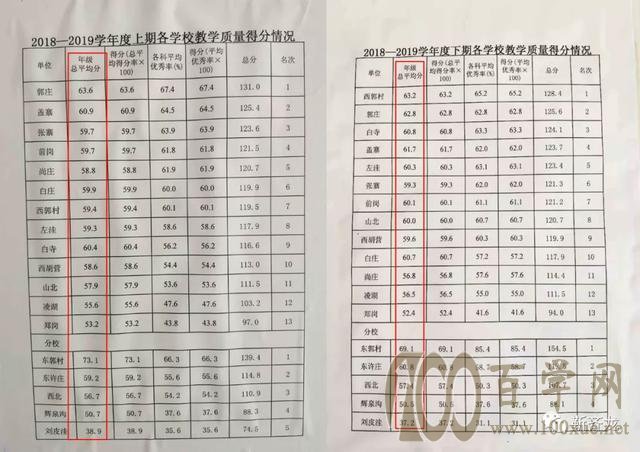 2018—2019学年度上期各学校教学质量得分情况
单位 年级总平均分 得分(总平均得分率×100) 各科平均优秀率(%) 得分(平均优秀率×100) 总分 名次
郭庄 63.6 63.6 67.4 67.4 131.0 1
盖寨 60.9 60.9 64.5 64.5 125.4 2
张寨 59.7 59.7 63.9 63.9 123.6 3
前岗 59.7 59.7 61.8 61.8 121.5 4
尚庄 58.8 58.8 61.9 61.9 120.7 5
白庄 59.9 59.9 60.0 60.0 119.9 6
西郭村 59.4 59.4 60.1 60.1 119.5 7
左洼 59.3 59.3 58.6 58.6 117.9 8
白寺 60.4 60.4 56.2 56.2 116.6 9
西胡营 58.6 58.6 54.4 54.4 113.0 10
山北 57.9 57.9 53.6 53.6 111.5 11
凌湖 55.6 55.6 47.6 47.6 103.2 12
郑岗 53.2 53.2 43.8 43.8 97.0 13
分校
东郭村 73.1 73.1 66.3 66.3 139.4 1
东许庄 59.2 59.2 55.6 55.6 114.8 2
西北 56.7 56.7 54.2 54.2 110.9 3
辉泉沟 50.7 50.7 37.6 37.6 88.3 4
刘皮洼 38.9 38.9 35.6 35.6 74.5 5
2018—2019学年度下期各学校教学质量得分情况
单位 年级总平均分 得分(总平均得分率×100) 各科平均优秀率(%) 得分(平均优秀率×100) 总分 名次
西郭村 63.2 63.2 65.2 65.2 128.4 1
郭庄 62.8 62.8 62.8 62.8 125.6 2
白寺 60.8 60.8 63.3 63.3 124.1 3
盖寨 61.7 61.7 62.0 62.0 123.7 4
左洼 60.3 60.3 63.1 63.1 123.4 5
张寨 59.3 59.3 62.0 62.0 121.3 6
前岗 60.1 60.1 61.1 61.1 121.2 7
山北 60.0 60.0 60.7 60.7 120.7 8
西胡营 59.6 59.6 60.3 60.3 119.9 9
白庄 60.7 60.7 57.2 57.2 117.9 10
尚庄 56.8 56.8 57.6 57.6 114.4 11
凌湖 56.5 56.5 55.0 55.0 111.5 12
郑岗 52.4 52.4 41.6 41.6 94.0 13
分校
东郭村 69.1 69.1 85.4 85.4 154.5 1
东许庄 60.8 60.8 58.7 58.7 2
西北 57.4 57.4 50.3 50.3 107.7 3
辉泉沟 50.5 50.5 37.6 37.6 88.1 4
刘皮洼 37.2 37.2
100百学网
www.100xue.net
新客龙